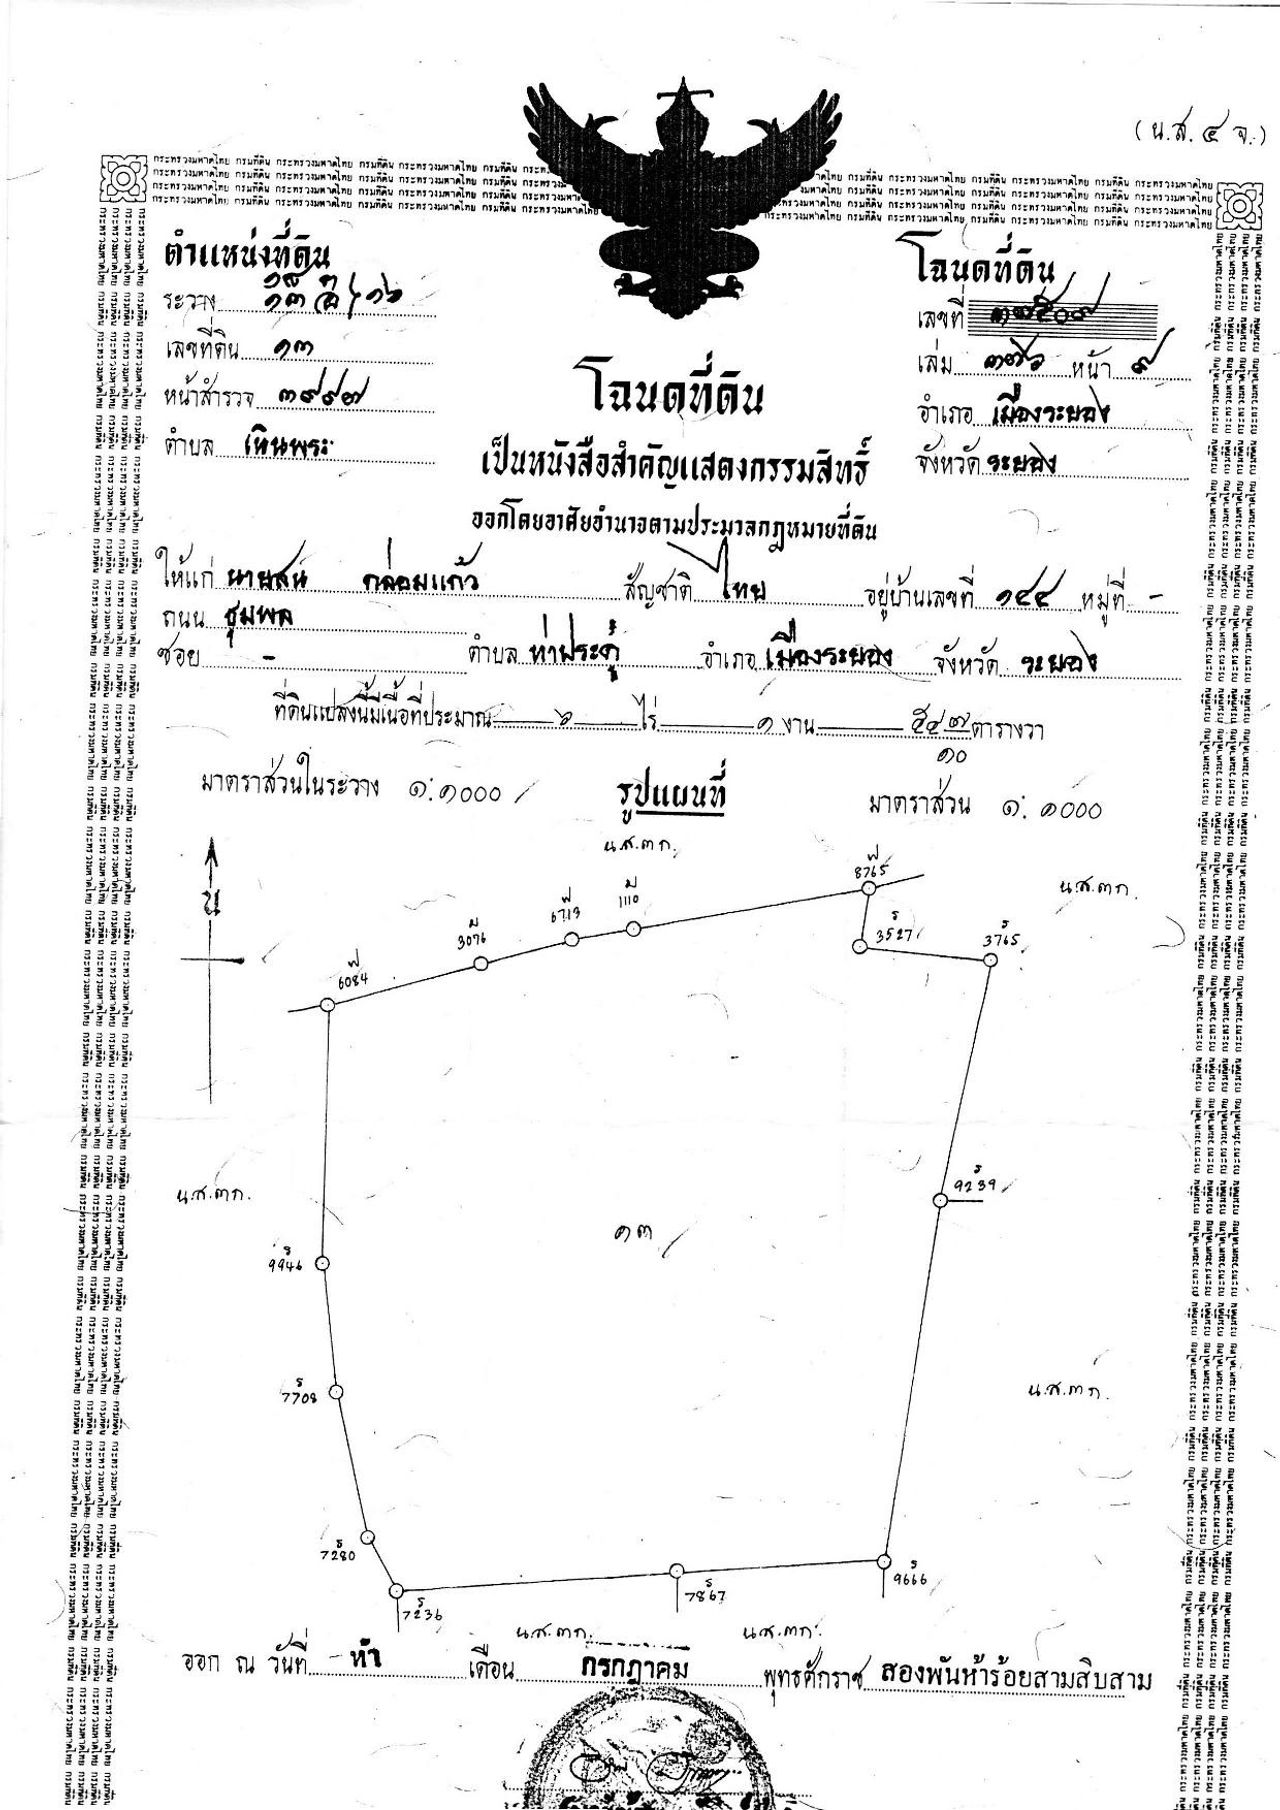 (น.ส. ๔ จ.)
กระทรวงมหาดไทย กรมที่ดิน กระทรวงมหาดไทย กรมที่ดิน กระทรวงมหาดไทย กรมที่ดิน
ตำแหน่งที่ดิน
ระวาง
เลขที่ดิน ๑๓
หน้าสำรวจ ๓๙๙๗
ตำบล เชิงเนินพระ
โฉนดที่ดิน
เลขที่
เล่ม ๓๗๖ หน้า ๙
อำเภอ เมืองระยอง
จังหวัด ระยอง
โฉนดที่ดิน
เป็นหนังสือสำคัญแสดงกรรมสิทธิ์
ออกโดยอาศัยอำนาจตามประมวลกฎหมายที่ดิน
ให้แก่ นายสน กล่อมแก้ว สัญชาติ ไทย อยู่บ้านเลขที่ ๑๔๔ หมู่ที่ -
ถนน ชุมพล
ซอย - ตำบล ท่าประดู่ อำเภอ เมืองระยอง จังหวัด ระยอง
ที่ดินแปลงนี้มีเนื้อที่ประมาณ ๖ ไร่ ๑ งาน ๕๔ ๗/๑๐ ตารางวา
มาตราส่วนในระวาง ๑:๑๐๐๐ รูปแผนที่ มาตราส่วน ๑:๑๐๐๐
น.ส.๓ก.
น
ฟ 8765
น.ส.๓ก.
ม 1110
ฟ 6713
ม 3076
ร 3527
ร 3765
ฟ 6084
น.ส.๓ก.
ร 9239
๑๓
ร 9946
ร 7708
น.ส.๓ก.
ร 7280
ร 9666
ร 7867
ร 7236
น.ส.๓ก. น.ส.๓ก.
ออก ณ วันที่ ห้า เดือน กรกฎาคม พุทธศักราช สองพันห้าร้อยสามสิบสาม